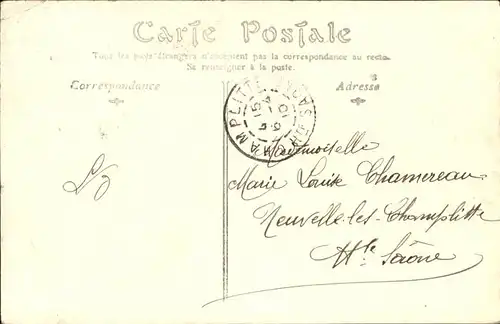 Carte Postale
Tous les pays étrangers n'acceptent pas la correspondance au recto
Se renseigner à la poste.
Correspondance
Adresse
Mademoiselle
Marie Louise Chamereau
Neuvelle-les-Champlitte
Hte Saône